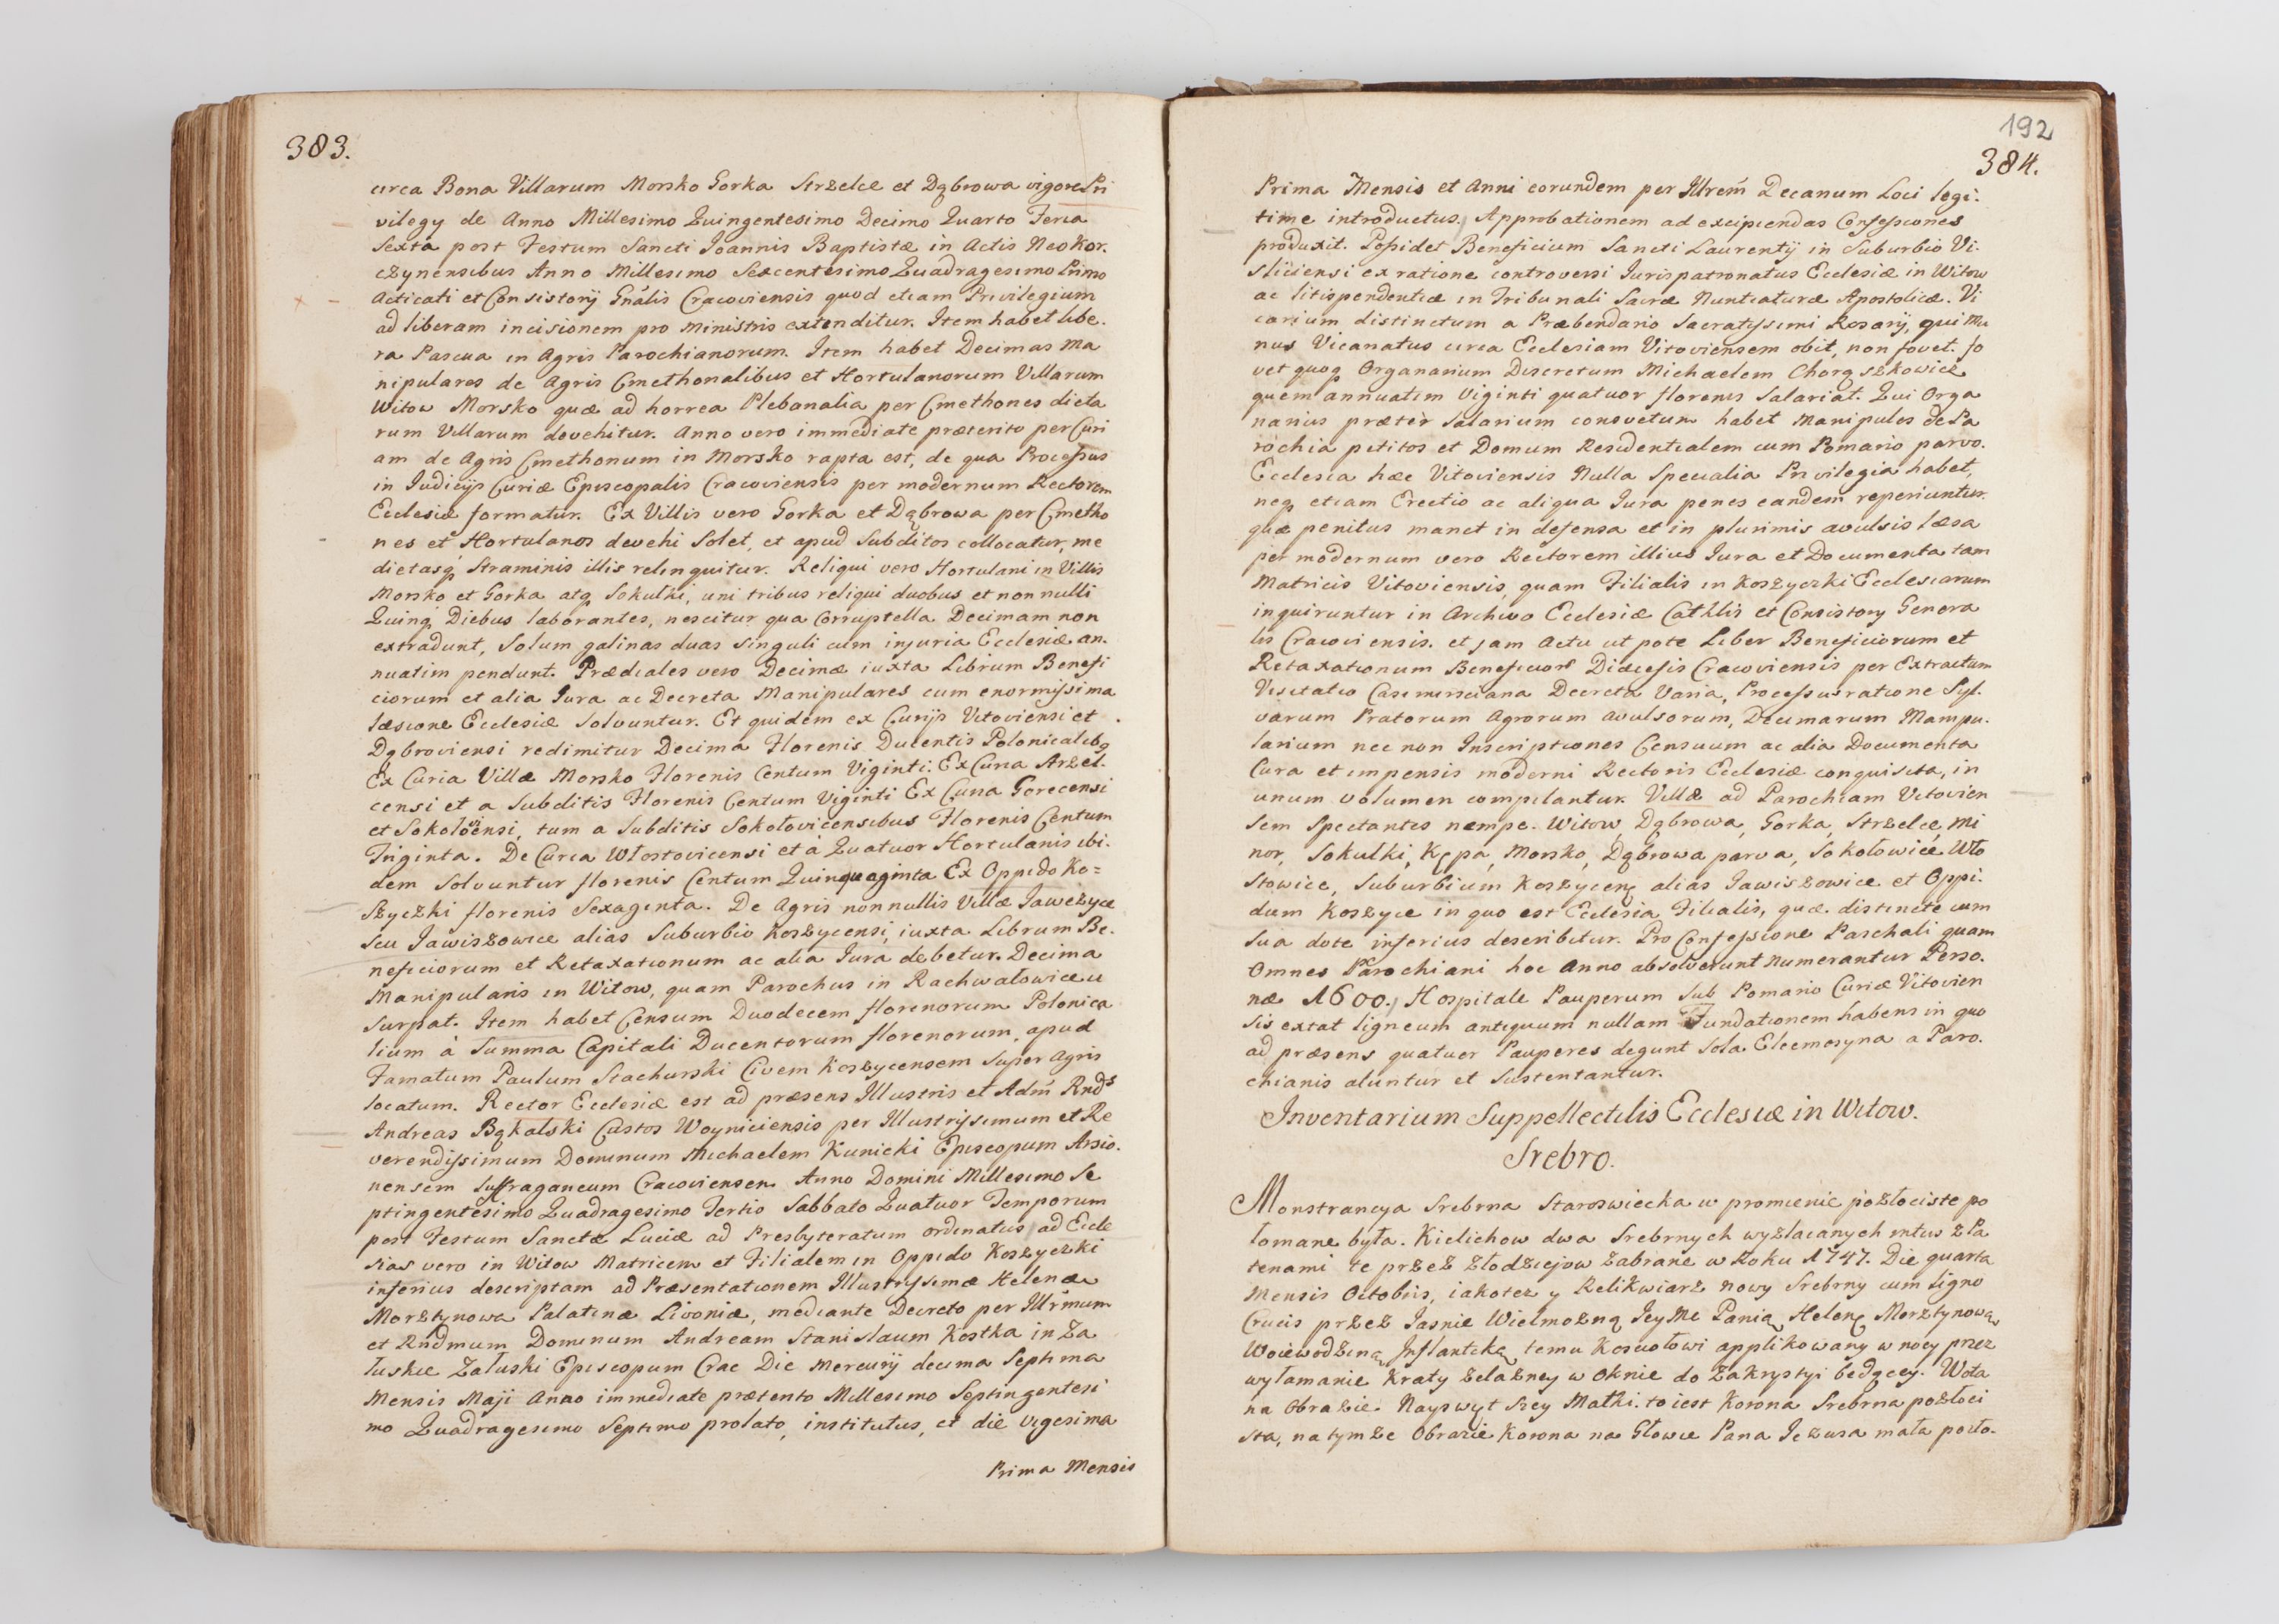 383.
circa Bona Villarum Morsko Gorka Strzelce et Dąbrowa vigore Pri
vilegy de Anno Millesimo Quingentesimo Decimo Quarto Feria
Sexta post Festum Sancti Joannis Baptistæ in Actis Neokor.
czynensibus Anno Millesimo Sexcentesimo Quadragesimo Primo
Acticati et Consistorij Gnâlis Cracoviensis quod etiam Privilegium
ad liberam incisionem pro Ministris extenditur. Item habet libe.
ra Pascua in Agris Parochianorum. Item habet Decimas Ma
nipulares de Agris Cmethonalibus et Hortulanorum Villarum
Witow Morsko quæ ad horrea Plebanalia per Cmethones dicta
rum Villarum devehitur. Anno vero immediate præterito per Curi
am de Agris Cmethonum in Morsko rapta est, de qua Processus
in Judicijs Curiæ Episcopalis Cracoviensis per modernum Rectorem
Ecclesiæ formatur. Ex Villis vero Gorka et Dąbrowa per Cmetho
nes et Hortulanos devehi Solet, et apud Subditos collocatur, me
dietasq Straminis illis relinquitur. Reliqui vero Hortulani in Villis
Morsko et Gorka atq Sokulki, uni tribus reliqui duobus et non nulli
Quinq Diebus laborantes, nescitur qua Corruptella Decimam non
extradunt, Solum galinas duas singuli cum injuria Ecclesiæ an.
nuatim pendunt. Prædiales vero Decimæ iuxta Librum Benefi
ciorum et alia Jura ac Decreta Manipulares cum enormissima
læsione Ecclesiæ Solvuntur. Et quidem ex Curijs Vitoviensi et
Dąbroviensi redimitur Decima Florenis Ducentis Polonicalibq
Ex Curia Villæ Morsko Florenis Centum Viginti. Ex Curia Strzel.
censi et a Subditis Florenis Centum Viginti Ex Curia Gorecensi
et Sokolovensi, tum a Subditis Sokołovicensibus Florenis Centum
Triginta. De Curia Włostovicensi et à Quatuor Hortulanis ibi.
dem Solvuntur florenis Centum Quinquaginta Ex Oppido Ko=
Szyczki florenis Sexaginta. De Agris nonnullis Villæ Jaweżyce
Seu Jawiszowice alias Suburbio Koszycensi, iuxta Librum Be.
neficiorum et Retaxationum ac alia Jura debetur. Decima
Manipularis in Witow, quam Parochus in Rachwałowice u
surpat. Item habet Censum Duodecem florenorum Polonica
lium à Summa Capitali Ducentorum florenorum, apud
Famatum Paulum Stachurski Civem Koszycensem Super Agris
locatum. Rector Ecclesiæ est ad præsens Illustris et Adm̃ Rnds
Andreas Bąkalski Castos Woyniciensis per Illustrissimum et Re
verendissimum Dominum Michaelem Kunicki Episcopum Arsio.
nensem Suffraganeum Cracoviensem Anno Domini Millesimo Se
ptingentesimo Quadragesimo Tertio Sabbato Quatuor Temporum
post Festum Sanctæ Luciæ ad Presbyteratum ordinatus, ad Eccle
sias vero in Witow Matricem et Filialem in Oppido Koszyczki
inferius descriptam ad Præsentationem Illustrissimæ Helenæ
Morsztynowa Palatinæ Livoniæ, mediante Decreto per Illr̃mum
et Rndmum Dominum Andream Stanislaum Kostka in Za
łuskie Załuski Episcopum Crac Die Mercurij decima Septima
Mensis Maji Anno immediate præterito Millesimo Septingentesi
mo Quadragesimo Septimo prolato, institutus, et die vigesima
Prima Mensis
192
384.
Prima Mensis et Anni eorundem per Illrem̃ Decanum Loci legi.
time introductus. Approbationem ad excipiendas Confessiones
produxit. Possidet Beneficium Sancti Laurentij in Suburbio Vi.
sliciensi ex ratione controversi Jurispatronatus Ecclesiæ in Witow
ac litispendentiæ in Tribunali Sacræ Nuntiaturæ Apostolicæ. Vi
carium distinctum a Præbendario Sacratissimi Rosarij, qui Mu
nus Vicariatus circa Ecclesiam Vitoviensem obit, non fovet. fo
vet quoq Organarium Discretum Michaelem Chorąszkowicz
quem annuatim Viginti quatuor florenis Salariat. Qui Orga
narius præter Salarium consvetum habet Manipulos de Pa
rochia petitos et Domum Residentialem cum Pomario parvo.
Ecclesia hæc Vitoviensis Nulla Specialia Privilegia habet,
neq etiam Erectio ac aliqua Jura penes eandem reperiuntur.
quæ penitus manet in defensa et in plurimis avulsis læsa
per modernum vero Rectorem illius Jura et Documenta tam
Matricis Vitoviensis, quam Filialis in Koszyczki Ecclesiarum
inquiruntur in Archivo Ecclesiæ Cathlis et Consistory Genera
lis Cracoviensis. et jam Actu ut pote Liber Beneficiorum et
Retaxationum Beneficiorũ Diæcesis Cracoviensis per Extractum
Visitatio Casimirsciana Decreta Varia, Processus ratione Syl.
varum Pratorum Agrorum Avulsorum, Decimarum Manipu.
larium nec non Inscriptiones Censuum ac alia Documenta
Cura et impensis moderni Rectoris Ecclesiæ conquisita, in
unum volumen compilantur. Villæ ad Parochiam Vitovien
sem Spectantes nempe. Witow, Dąbrowa, Gorka, Strzelce, Mi
nor, Sokulki, Kępa, Morsko, Dąbrowa parva, Sokołowice Wło
stowice, Suburbium Koszycenę alias Jawiszowice et Oppi.
dum Koszyce in quo est Ecclesia Filialis, quæ distincte cum
Sua dote inferius describitur. Pro Confessione Paschali quam
Omnes Parochiani hoc Anno absolverunt Numerantur Perso.
næ 1600. Hospitale Pauperum Sub Pomario Curiæ Vitovien
sis extat ligneum antiquum nullam Fundationem habens in quo
ad præsens quatuor Pauperes degunt Sola Eleemosyna a Paro.
chianis aluntur et Sustentantur.
Inventarium Suppellectilis Ecclesiæ in Witow.
Srebro.
Monstrancya Srebrna Staroswiecka w promienie pozłociste po
łomane była. Kielichow dwa Srebrnych wyzłacanych intus z Pa
tenami te przez Złodziejow zabrane w Roku 1747. Die quarta
Mensis Octobris, iakotez y Relikwiarz nowy Srebrny cum Signo
Crucis przez Jasnie Wielmożną JeyMc Panią Helenę Morsztynową
Woiewodziną Inflantską temu Kosciołowi applikowany w nocy przez
wyłamanie Kraty żelazney w Oknie do Zakrystyi będącey. Wota
na Obrazie Nayswytszey Matki. to iest Korona Srebrna pozłoci
sta, na tymze Obrazie Korona na Głowie Pana Jezusa mała pozło.